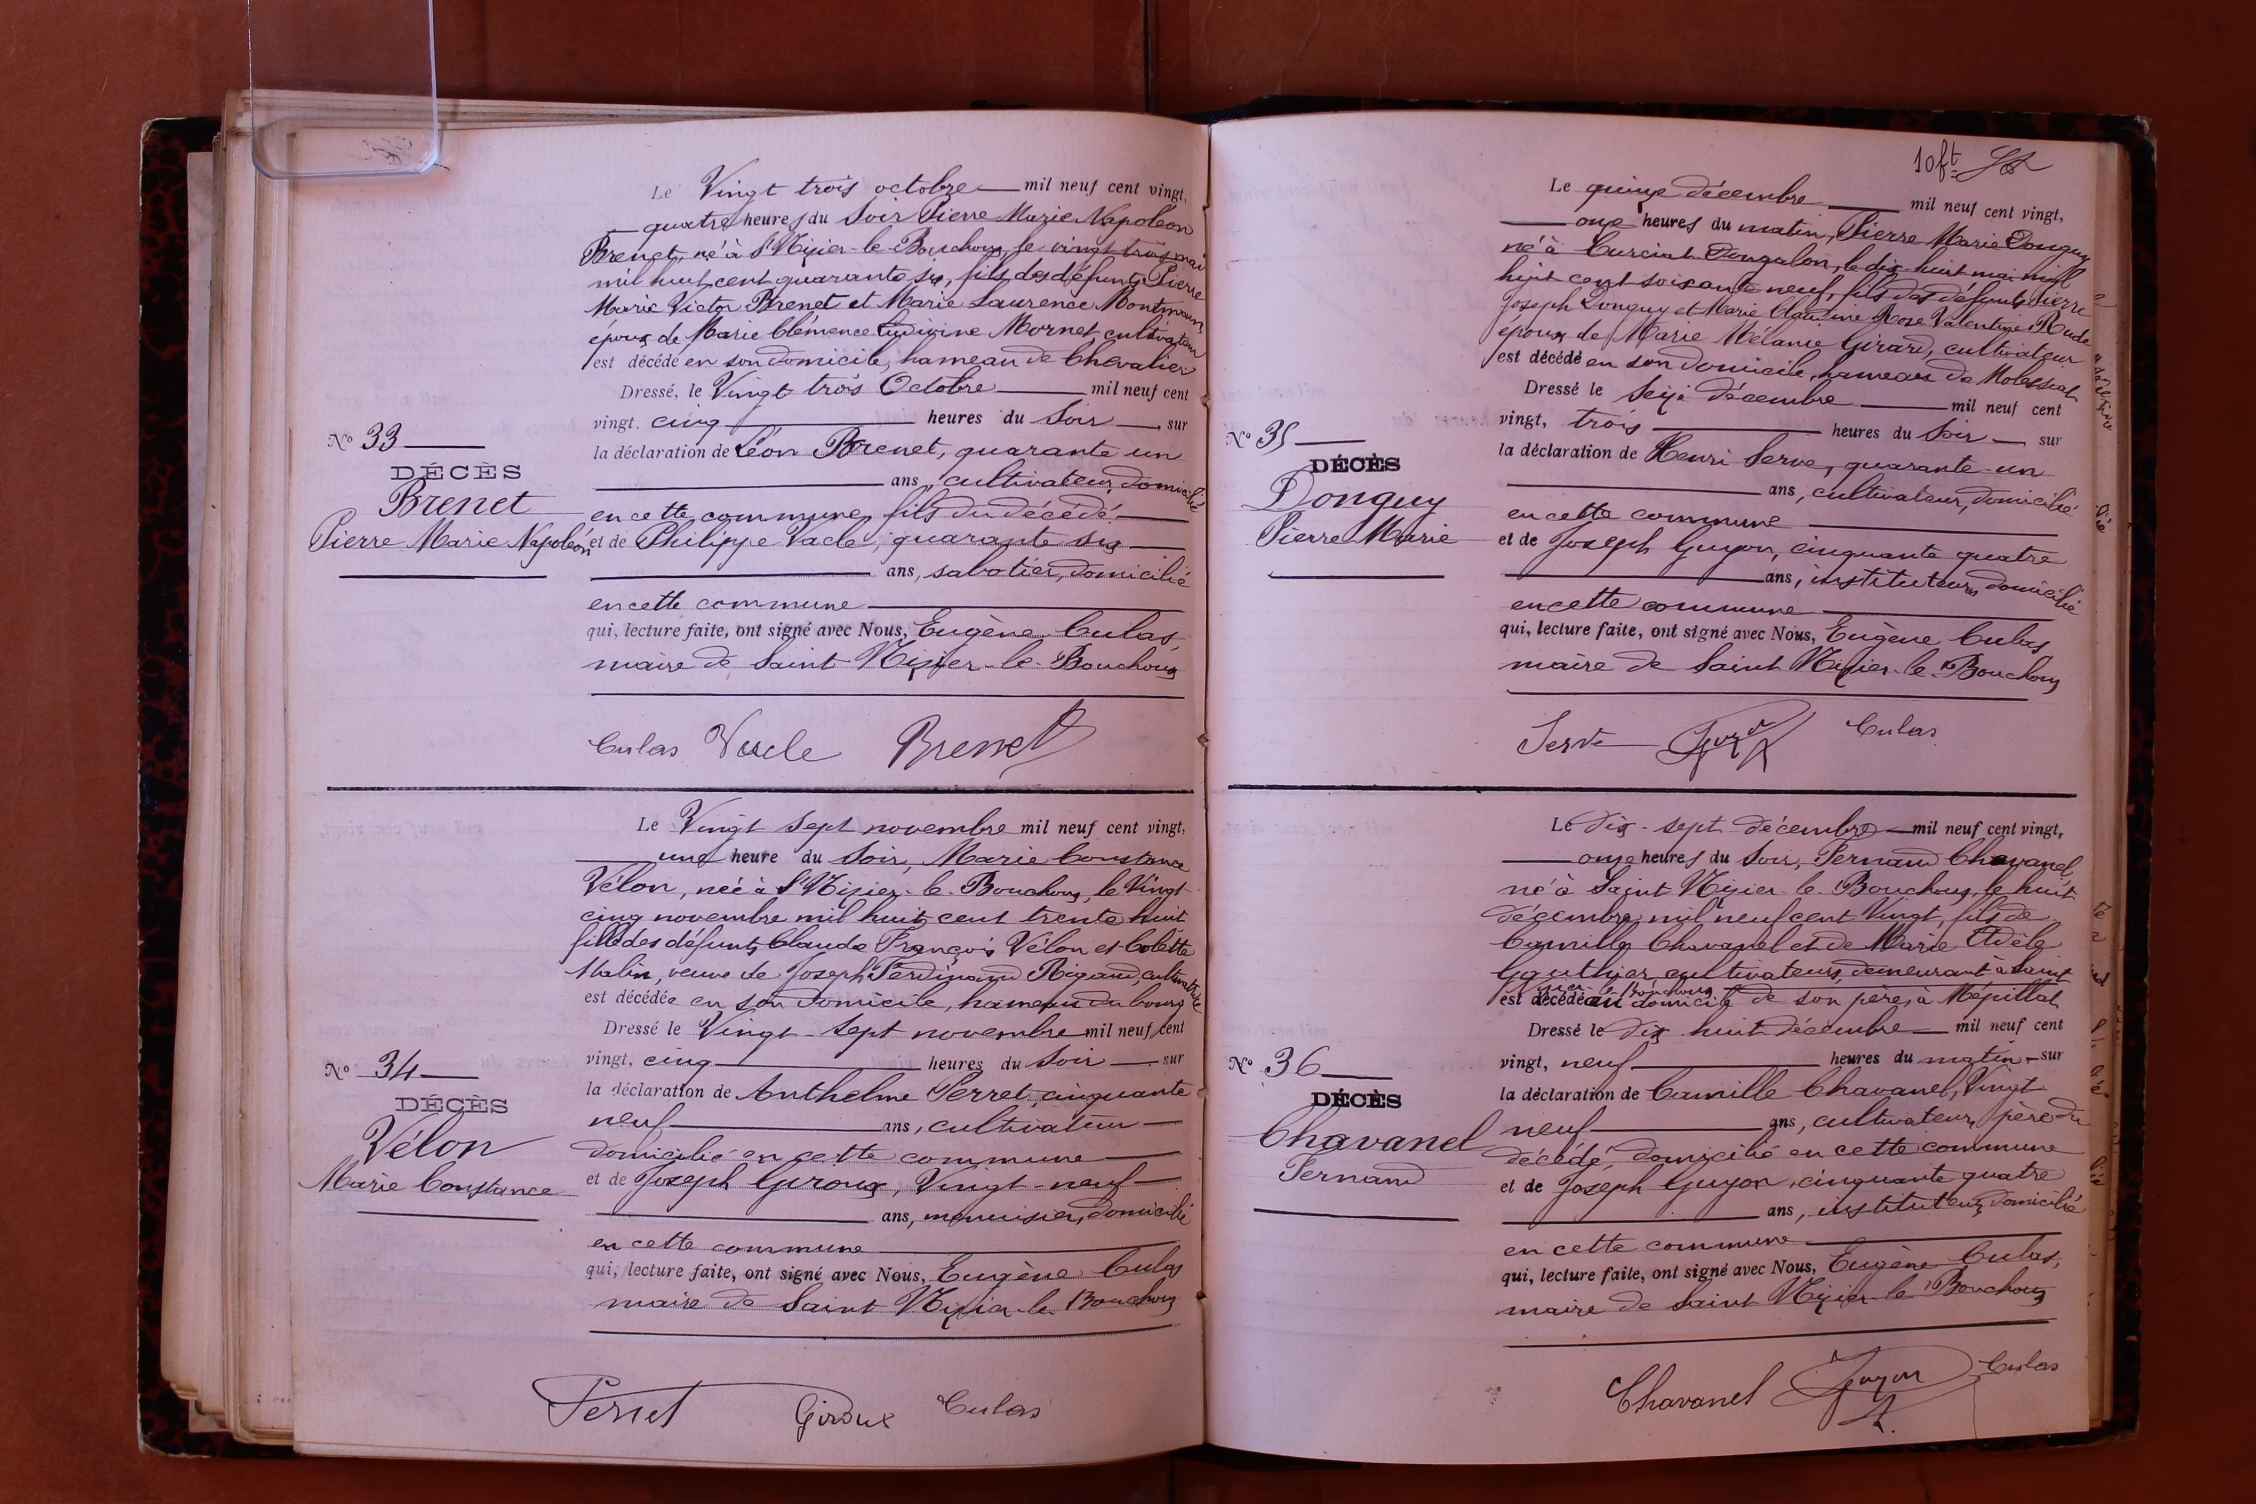 Le Vingt trois octobre mil neuf cent vingt,
quatre heures du Soir Pierre Marie Napoléon
Brenet, né à St Nizier-le-Bouchoux, le vingt trois mai
mil huit cent quarante six, fils des défunts Pierre
Marie Victor Brenet et Marie Laurence Montmain
époux de Marie Clémence Mornet, cultivateur
est décédé en son domicile, hameau de Chevalier
Dressé, le Vingt trois Octobre mil neuf cent
vingt, cinq heures du Soir sur
No 33
DÉCÈS
Brenet
Pierre Marie Napoléon
la déclaration de Léon Brenet, quarante un
ans, cultivateur, domicilié
en cette commune, fils du décédé
et de Philippe Vacle, quarante six
ans, sabotier, domicilié
en cette commune
qui, lecture faite, ont signé avec Nous, Eugène Culas,
maire de Saint Nizier-le-Bouchoux
Culas Vacle Brenet
Le Vingt sept novembre mil neuf cent vingt,
une heure du Soir, Marie Constance
Vélon, née à St Nizier-le-Bouchoux, le Vingt
cinq novembre mil huit cent trente huit
fille des défunts Claude François Vélon et Colette
Malin, veuve de Joseph Ferdinand Rigaud, cultivatrice
est décédée en son domicile, hameau du bourg
Dressé le Vingt-sept novembre mil neuf cent
vingt, cinq heures du Soir sur
No 34
DÉCÈS
Vélon
Marie Constance
la déclaration de Anthelme Perret, cinquante
neuf ans, cultivateur
domicilié en cette commune
et de Joseph Giroux, Vingt-neuf
ans, menuisier, domicilié
en cette commune
qui, lecture faite, ont signé avec Nous, Eugène Culas
maire de Saint Nizier-le-Bouchoux
Perret Giroux Culas
10 ft
Le quinze décembre mil neuf cent vingt,
onze heures du matin, Pierre Marie Donguy
né à Curciat-Dongalon, le dix-huit mai mil
huit cent soixante neuf, fils des défunts Pierre
Joseph Donguy et Marie Claudine Rose Valentine Rude
époux de Marie Mélanie Girard, cultivateur
est décédé en son domicile, hameau de Molessiat
Dressé le Seize décembre mil neuf cent
vingt, trois heures du Soir sur
No 35
DÉCÈS
Donguy
Pierre Marie
la déclaration de Henri Serve, quarante-un
ans, cultivateur, domicilié
en cette commune
et de Joseph Guyon, cinquante quatre
ans, instituteur, domicilié
en cette commune
qui, lecture faite, ont signé avec Nous, Eugène Culas
maire de Saint Nizier-le-Bouchoux
Serve Guyon Culas
Le dix-sept décembre mil neuf cent vingt,
onze heures du Soir, Fernand Chavanel,
né à Saint Nizier-le-Bouchoux, le huit
décembre mil neuf cent Vingt, fils de
Camille Chavanel et de Marie Adèle
Gauthier, cultivateurs, demeurant à Saint
Nizier-le-Bouchoux
est décédé au domicile de son père, à Mépillat
Dressé le dix huit décembre mil neuf cent
vingt, neuf heures du matin sur
No 36
DÉCÈS
Chavanel
Fernand
la déclaration de Camille Chavanel, Vingt
neuf ans, cultivateur, père du
décédé, domicilié en cette commune
et de Joseph Guyon, cinquante quatre
ans, instituteur, domicilié
en cette commune
qui, lecture faite, ont signé avec Nous, Eugène Culas,
maire de Saint Nizier-le-Bouchoux
Chavanel Guyon Culas